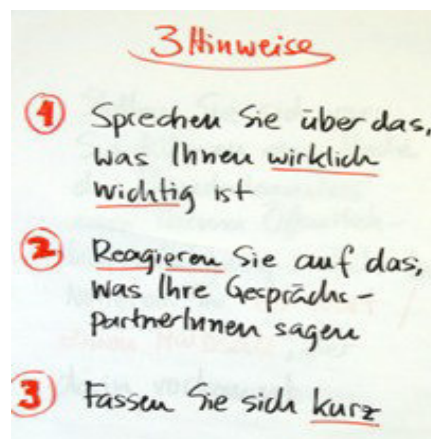 3 Hinweise
1 Sprechen Sie über das,
was Ihnen wirklich
wichtig ist
2 Reagieren Sie auf das,
was Ihre Gesprächs-
partnerInnen sagen
3 Fassen Sie sich kurz